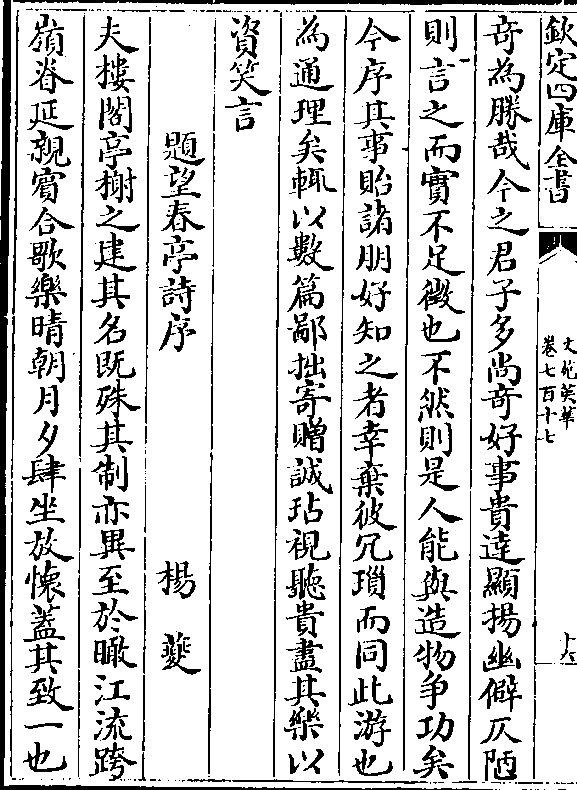 欽定四庫全書
文苑英華
卷七百十七
奇為勝哉今之君子多尚奇好事貴逹顯揚幽僻仄陋
則言之而實不足徴也不然則是人能與造物争功矣
今序其事貽諸朋好知之者幸棄彼冗瑣而同此游也
為通理矣輒以數篇鄙拙寄贈誠玷視聽貴盡其樂以
資笑言
題望春亭詩序
楊夔
夫樓閣亭榭之建其名既殊其制亦異至於瞰江流跨
嶺脊延親賓合歌樂晴朝月夕肆坐放懷葢其致一也